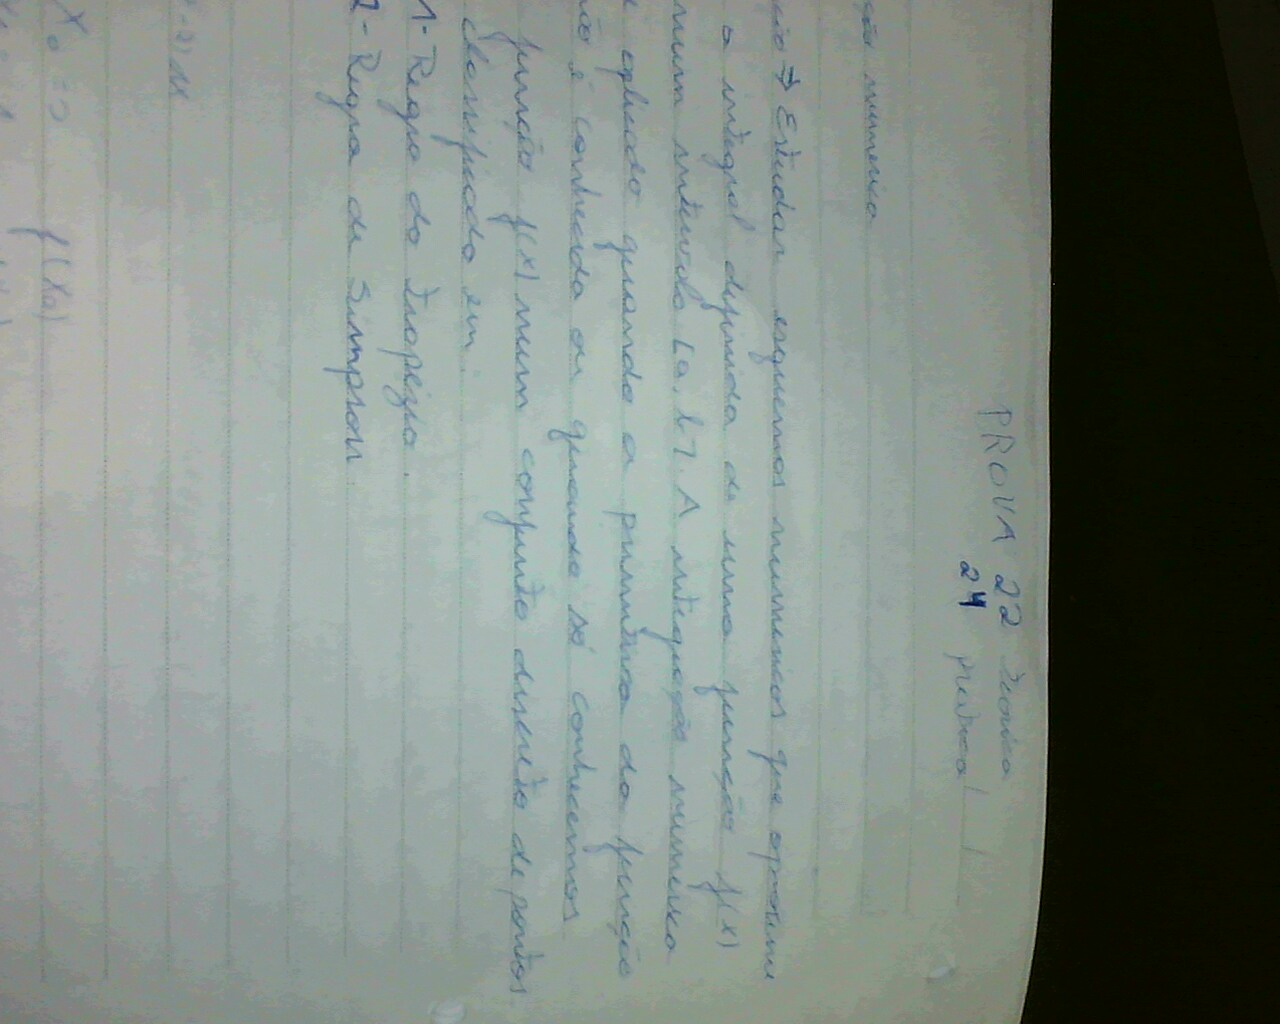 PROVA 22 teorica
24 pratica
ção numerica
ução → Estudar esquemas numericos que aproxime
a integral definida de uma função f(x)
num intervalo [a,b]. A integração numerica
e aplicado quando a primitiva da função
não é conhecida ou quando só conhecemos
função f(x) num conjunto discreto de pontos
classificada em:
1- Regra do trapezio.
2- Regra de Simpson
X₀ f(x₀)